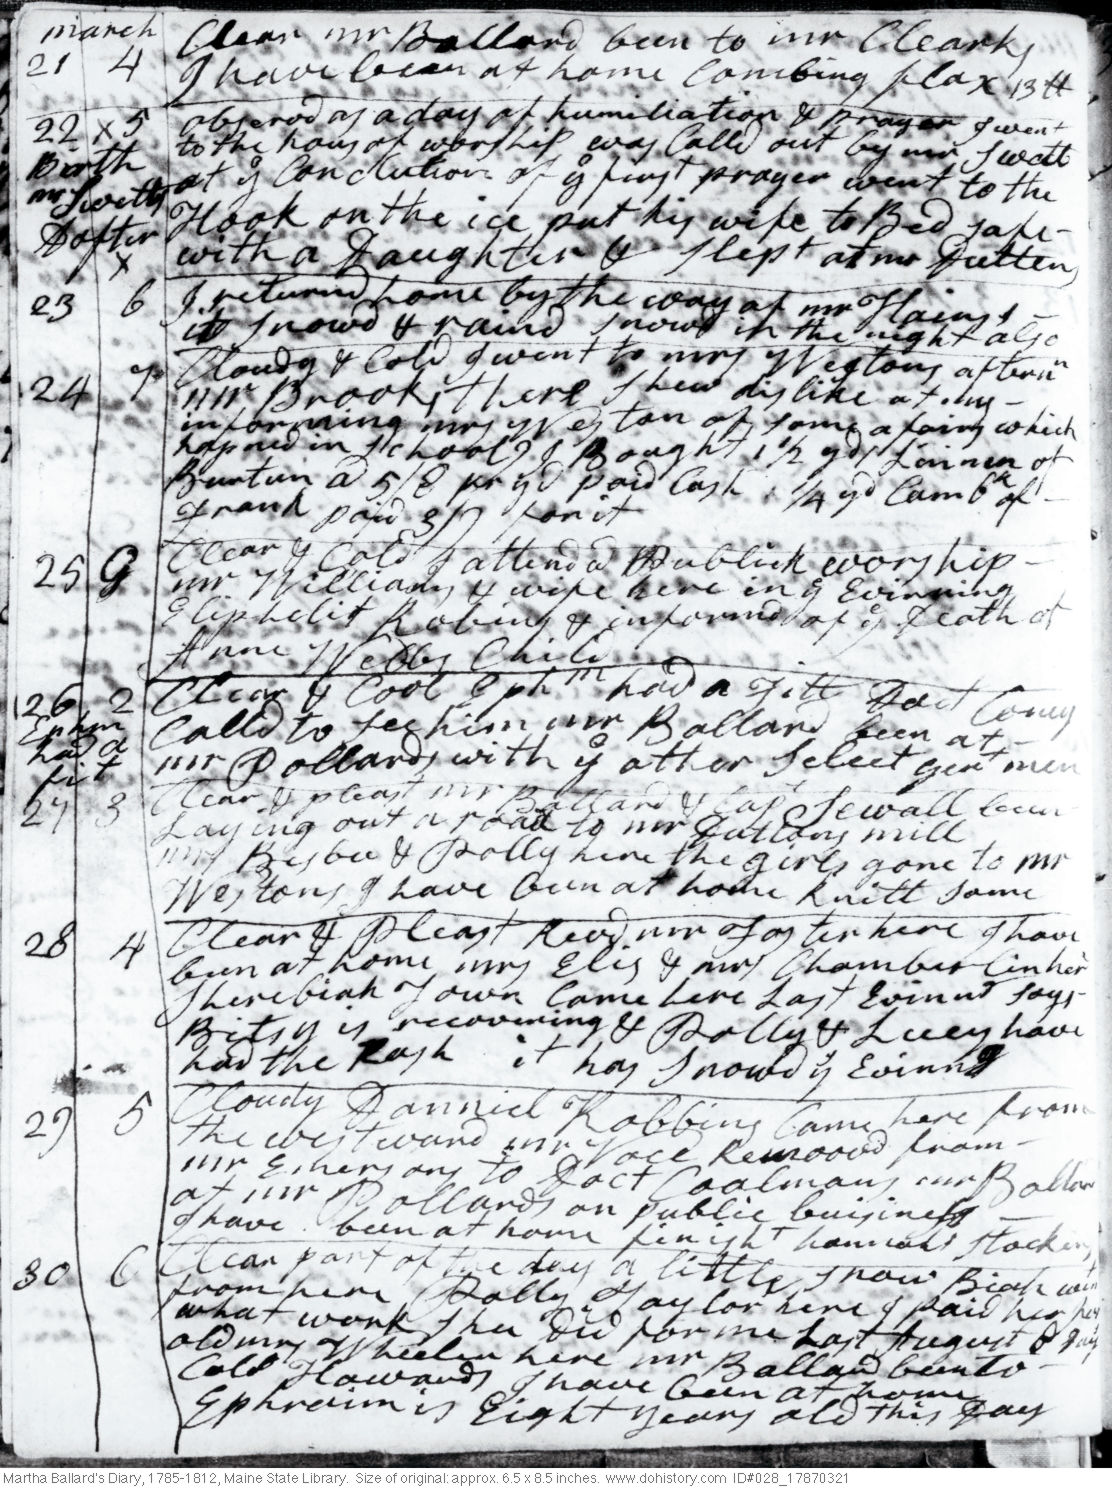 march
21 4 Clear mr Ballard been to mr Clearks
I have been at home Combing flax 13 lb
22 x 5 obserod as a day of humiliation & prayer I went
to the hous of worship was Calld out by mr Swett
Birth at ye Conclution of ye first prayer went to the
mr Swetts Hook on the ice put his wife to Bed safe-
Dafter with a Daughter & Slept at mr Duttens
x
23 6 I returnd home by the way of mr Hains -
it snowd & raind snowd in the night also
24 7 Cloudy & Cold I went to mrs Westons aftern n
mr Brooks there Shew dislike at my -
informing mrs Weston of some afairs which
hapned in School I Bought 1 1/2 yds Linnen of
Burtun a 5/8 pr yd paid Cash 1/4 yd Camb k of -
Frank paid 3/ for it
25 G Clear & Cold I attend a Publick worship -
mr Williams & wife here in ye Evinning
Eliphelit Robins & informd of ye Death of
Anne Webbs Child
26 2 Clear & Cool Eph m had a fitt Doct Coney
Ephm Calld to see him mr Ballard been at -
had a mr Pollards with ye other Select gent men
fit
27 3 Clear & pleast mr Ballard & Capt Sewall been
Laying out a road to mr Duttons mill
mrs Besbee & Polly here the girls gone to mr
Westons I have been at home knitt some
28 4 Clear & Pleast Revd mr Foster here I have
been at home mrs Elis & mrs Chamberlin her
Sherebiah Town Came here Last Evinng says
Bitsy is recovering & Polly & Lucy have
had the Rash it has Snowd ye Evinng
29 5 Cloudy Danniel Robbins Came here from
the westward mr Voce Remoovd from -
mr Emersons to Doct Coalmans mr Ballard
at mr Pollards on public buisiness -
I have been at home finisht hannahs stockens
30 6 Clear part of the day a little snow Biah went
from here Polly Taylor here I paid her for
what work Shee Did for me Last August 8 Days
old mrs Wheeler here mr Ballard been to -
Coll Howards I have been at home
Ephraim is Eight years old this Day
Martha Ballard's Diary, 1785-1812, Maine State Library. Size of original: approx. 6.5 x 8.5 inches. www.dohistory.com ID#028_17870321